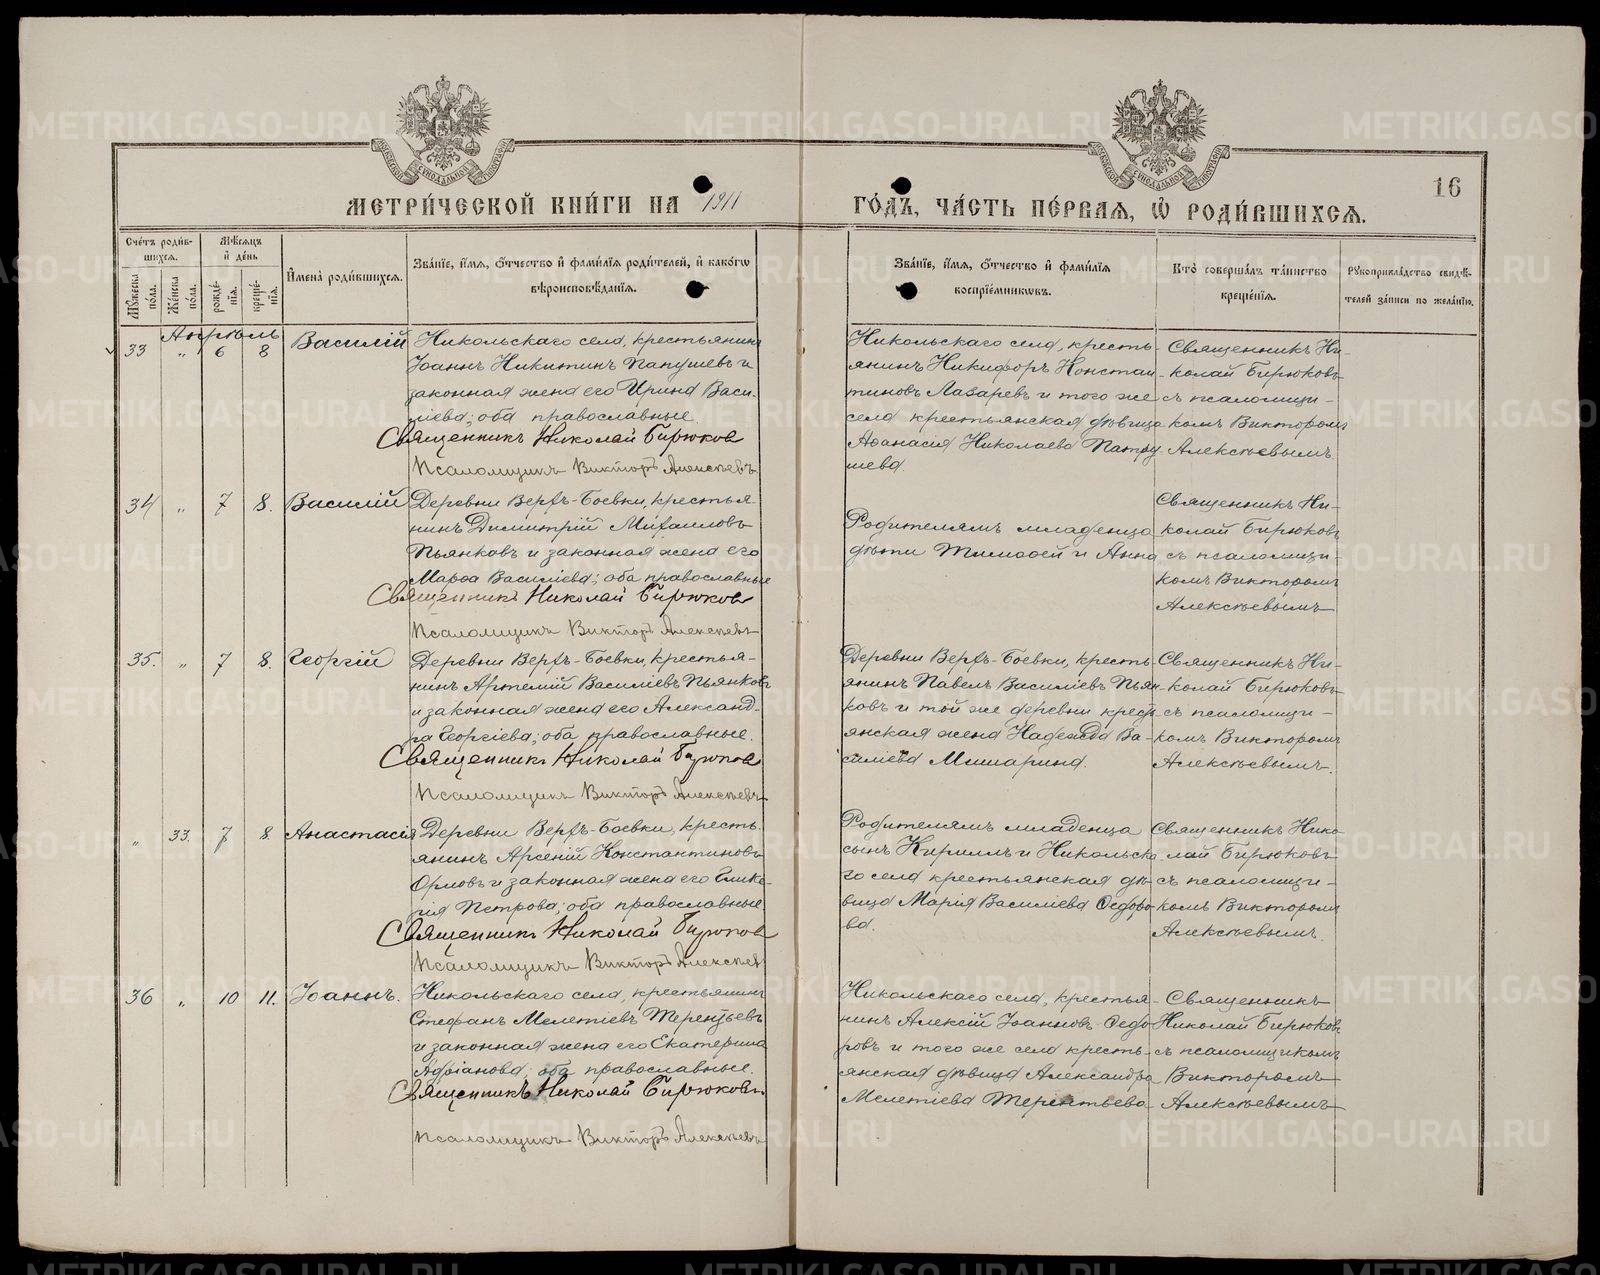 МЕТРИ́ЧЕСКОЙ КНИ́ГИ НА 1911
ГО́ДЪ, ЧА́СТЬ ПЕ́РВАЯ, Ѡ҆ РОДИ́ВШИХСЯ.
16
Сче́тъ роди́вшихся.
Мѣ́сяцъ и҆ де́нь
И҆мена̀ роди́вшихся.
Зва́нїе, и҆́мя, ѻ҆́тчество и҆ фами́лїя роди́телей, и҆ како́гѡ
вѣроисповѣ́данїя.
Зва́нїе, и҆́мя, ѻ҆́тчество и҆ фами́лїя
воспрїе́мникѡвъ.
Кто̀ соверша́лъ та́инство
креще́нїя.
Рꙋкоприкла́дство свидѣ́телей за́писи по жела́нїю.
Мꙋ́жеска по́ла.
Же́нска по́ла.
рожде́нїя.
креще́нїя.
Апрѣль
33 „ 6 8 Василій
Никольскаго села, крестьянинъ
Іоаннъ Никитинъ Папушевъ и
законная жена его Ирина Васи-
ліева; оба православные.
Священникъ Николай Бирюковъ
Псаломщикъ Викторъ Алексѣевъ
Никольскаго села, кресть-
янинъ Никифоръ Констан-
тиновъ Лазаревъ и того же
села крестьянская дѣвица
Аѳанасія Николаева
шева.
Священникъ Ни-
колай Бирюковъ
съ псаломщи-
комъ Викторомъ
Алексѣевымъ.
34 „ 7 8. Василій
Деревни Верхъ-Боевки, крестья-
нинъ Димитрій Михаиловъ
Пьянковъ и законная жена его
Марѳа Василіева; оба православные
Священникъ Николай Бирюковъ
Псаломщикъ Викторъ Алексѣевъ
Родителямъ младенца
дѣти Тимоѳей и Анна
Священникъ Ни-
колай Бирюковъ
съ псаломщи-
комъ Викторомъ
Алексѣевымъ
35. „ 7 8. Георгій
Деревни Верхъ-Боевки, крестья-
нинъ Артемій Василіевъ Пьянковъ
и законная жена его Александ-
ра Георгіева; оба православные.
Священникъ Николай Бирюковъ
Псаломщикъ Викторъ Алексѣевъ
Деревни Верхъ-Боевки, кресть-
янинъ Павелъ Василіевъ Пьян-
ковъ и той же деревни кресть-
янская жена Надежда Ва-
силіева Мишарина.
Священникъ Ни-
колай Бирюковъ
съ псаломщи-
комъ Викторомъ
Алексѣевымъ.
„ 33. 7 8 Анастасія
Деревни Верхъ-Боевки, кресть-
янинъ Арсеній Константиновъ
Орловъ и законная жена его Глике-
рія Петрова; оба православные
Священникъ Николай Бирюковъ
Псаломщикъ Викторъ Алексѣевъ
Родителямъ младенца
сынъ Кириллъ и Никольска-
го села крестьянская дѣ-
вица Марія Василіева Ѳедоро-
ва.
Священникъ Нико-
лай Бирюковъ
съ псаломщи-
комъ Викторомъ
Алексѣевымъ.
36 „ 10 11. Іоаннъ.
Никольскаго села, крестьянинъ
Стефанъ Мелетіевъ Терентьевъ
и законная жена его Екатерина
Адріанова; оба православные.
Священникъ Николай Бирюковъ
Псаломщикъ Викторъ Алексѣевъ
Никольскаго села, крестья-
нинъ Алексій Іоанновъ Ѳедо-
ровъ и того же села кресть-
янская дѣвица Александра
Мелетіева Терентьева
Священникъ
Николай Бирюковъ
съ псаломщикомъ
Викторомъ
Алексѣевымъ
METRIKI.GASO-URAL.RU